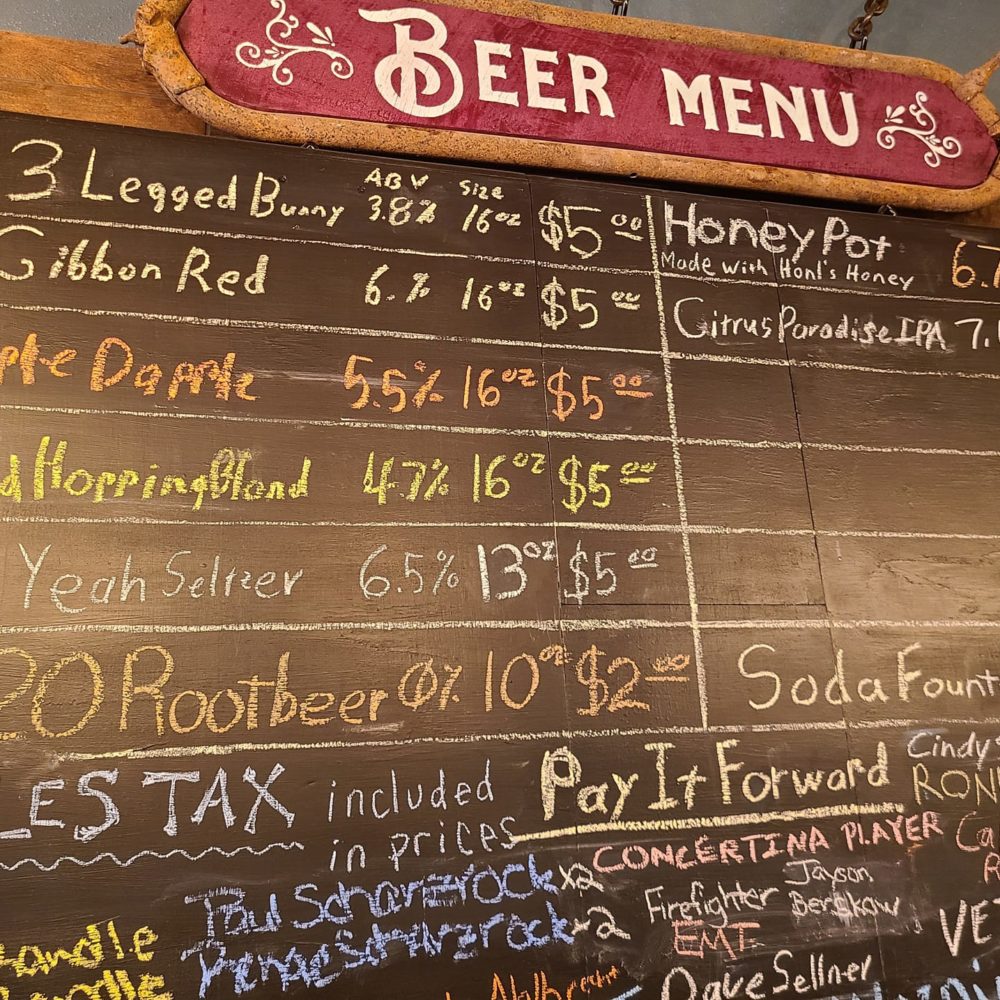 BEER MENU
ABV Size
3 Legged Bunny 3.8% 16oz $5.00
Gibbon Red 6.% 16oz $5.00
Dapple 5.5% 16oz $5.00
Hopping Blond 4.7% 16oz $5.00
Yeah Seltzer 6.5% 13oz $5.00
Rootbeer 0% 10oz $2.00
Honey Pot 6.
Made with Honl's Honey
Citrus Paradise IPA 7.
Soda Fount
LES TAX included
in prices
Pay It Forward
Cindy
RON
CONCERTINA PLAYER
Paul Scharzrock x2
Renae Scharzrock x2
Firefighter
EMT
Jayson
Berskow
VET
Dave Sellner
andle